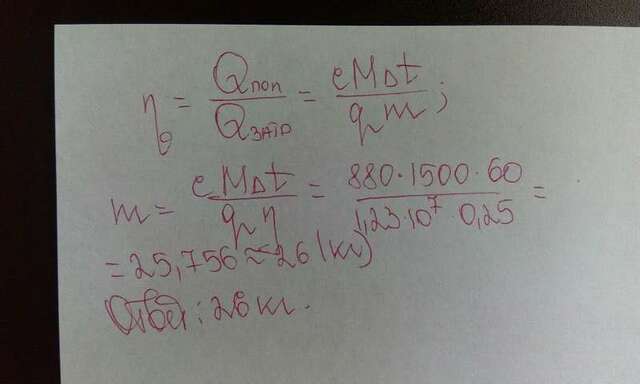 η = Qпол / Qзатр = cMΔt / qm;
m = cMΔt / qη = 880·1500·60 / 1,23·10⁷·0,25 =
= 25,756 ≈ 26 (кг)
Ответ: 26 кг.